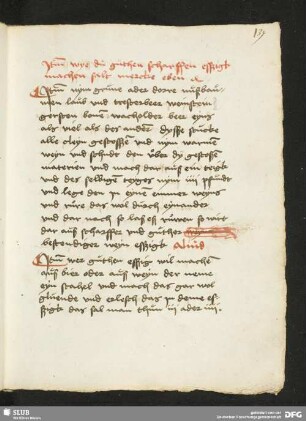 Item wye du guthen scharffen essigk
machen salt mercke eben
Item nym grune ader dorre nußbau-
men laub und weinstein
gersten korn wacholder beer eyns
als viel als des ander dysse stucke
alle cleyn gestossen und nym warmen
weyn und schudt den uber dy gestosse
materien und mach dar auß ein teigk
und des selbigen teyges nym iiii pfundt
und lege den in eynen emmer weyns
und rure das wol durch eynander
und dar nach so laß es ruwen so wirt
dar auß scharffer und guther
bestendiger weyn essigk Aliud
Item wer guthen essig wil machen
auß bier ader auß weyn der neme
eyn stahel und mach das gar wol
gluende und erlesch das in deme es-
sigk das sal man thun iii ader iiii
SLUB
DFG